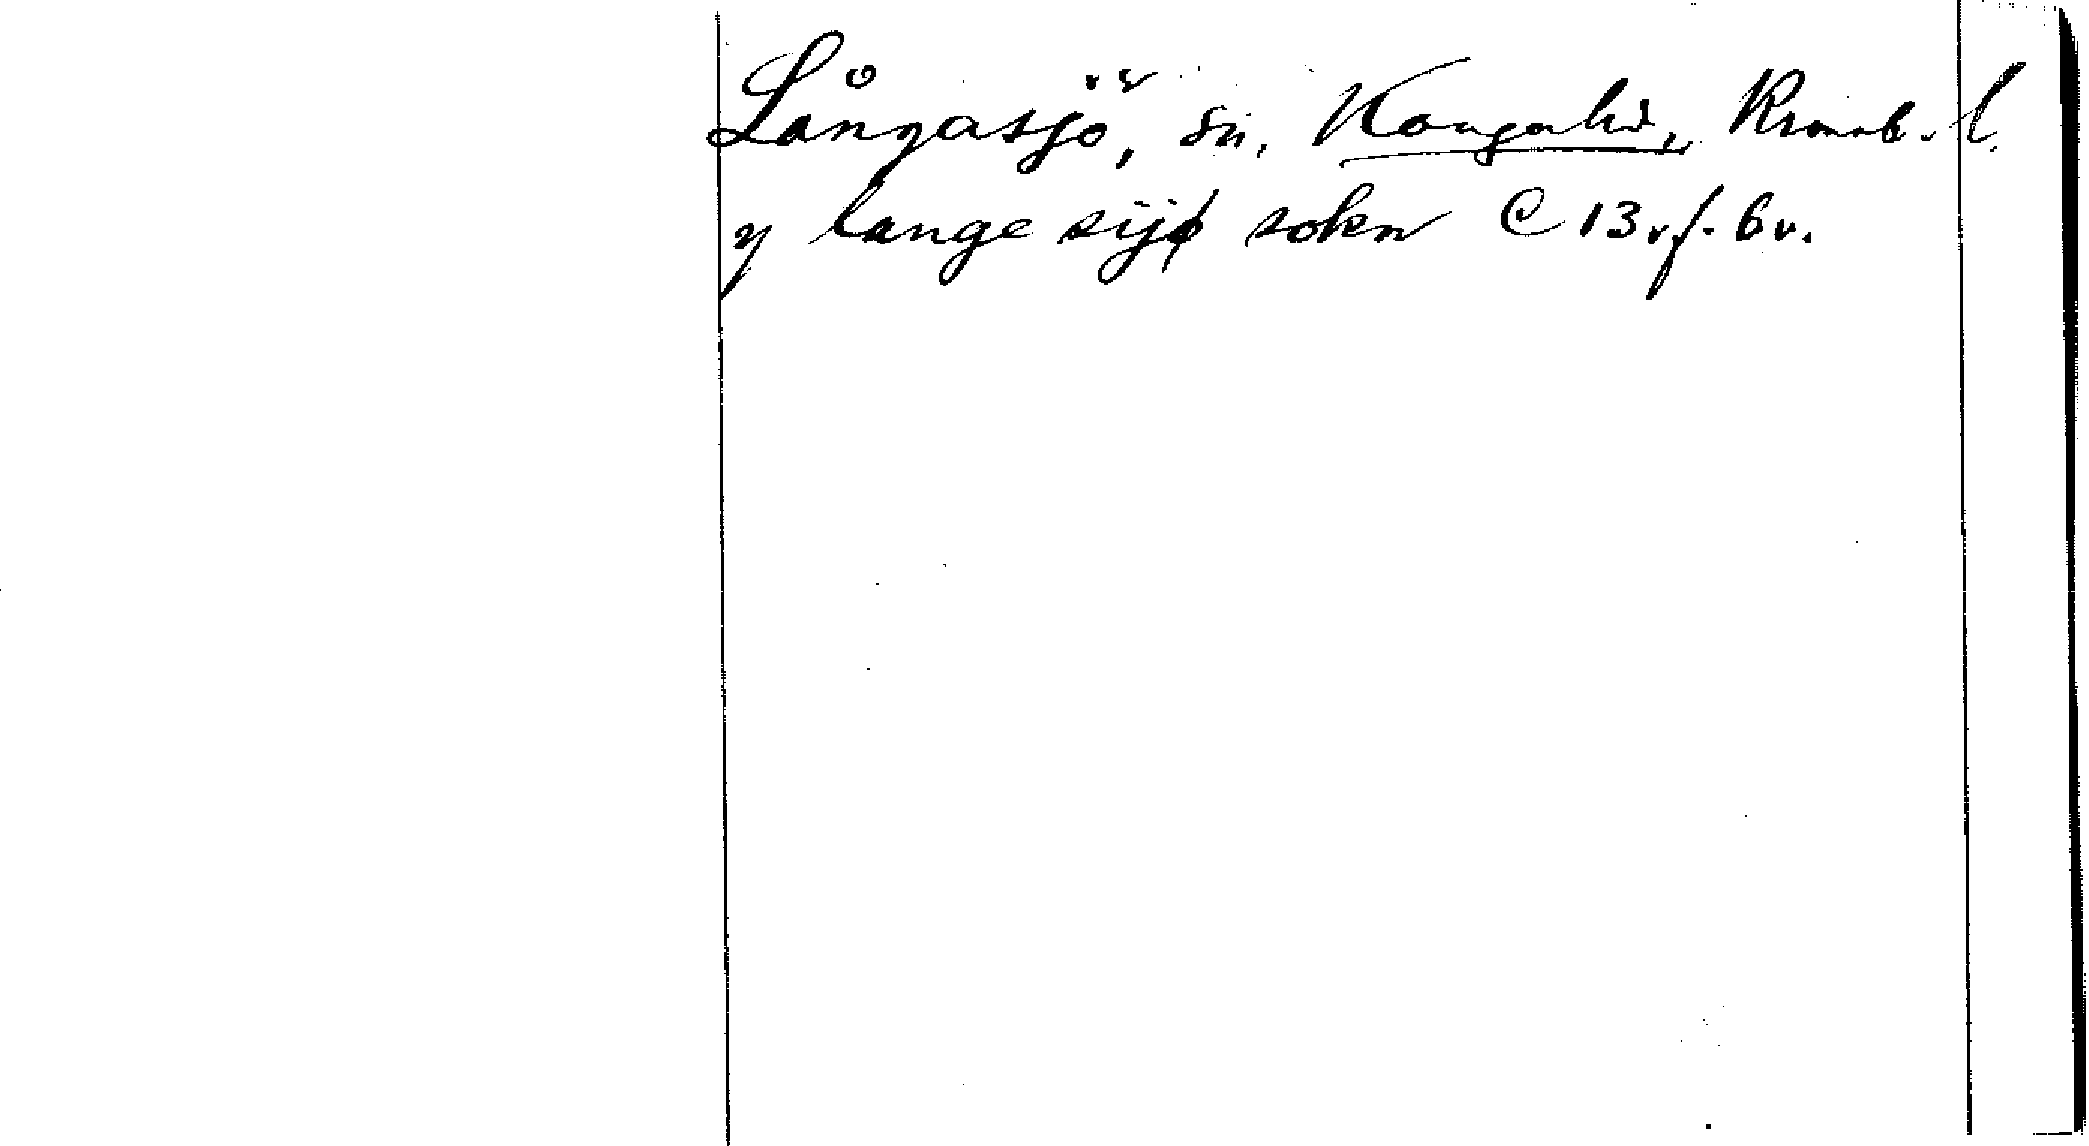 Långasjö, sn, Konga hd, Kronob. l.
y lange sijø sokn C 13 v f. 6v.